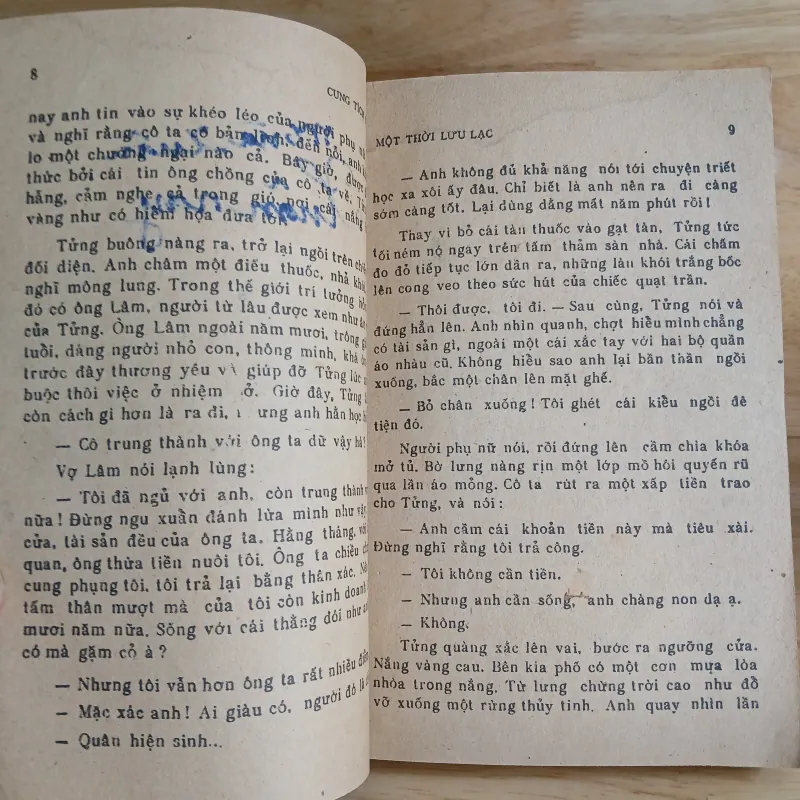 8
CUNG TÍCH
nay anh tin vào sự khéo léo của người phụ
và nghĩ rằng cô ta có bản lĩnh, đến nỗi, anh
lo một chướng ngại nào cả. Bây giờ, được
thức bởi cái tin ông chồng của cô ta về,
hẳng, cảm nghe cả trong gió nơi cái nắng
vàng như có hiểm họa đưa tới.
Tửng buông nàng ra, trở lại ngồi trên
đối diện. Anh châm một điếu thuốc, nhả khói
nghĩ mông lung. Trong thế giới trí tưởng
đó có ông Lâm, người từ lâu được xem như
của Tửng. Ông Lâm ngoài năm mươi, trông
tuổi, dáng người nhỏ con, thông minh, khả
trước đây thương yêu và giúp đỡ Tửng lúc
buộc thôi việc ở nhiệm sở. Giờ đây, Tửng
còn cách gì hơn là ra đi, nhưng anh hằn học
— Cô trung thành với ông ta dữ vậy hả!
Vợ Lâm nói lạnh lùng:
— Tôi đã ngủ với anh, còn trung thành
nữa! Đừng ngu xuẩn đánh lừa mình như vậy.
cửa, tài sản đều của ông ta. Hằng tháng, với
quan, ông thừa tiền nuôi tôi. Ông ta chiều
cung phụng tôi, tôi trả lại bằng thân xác.
tấm thân mượt mà của tôi còn kinh doanh
mươi năm nữa. Sống với cái thằng đói như
có mà gặm cỏ à?
— Nhưng tôi vẫn hơn ông ta rất nhiều
— Mặc xác anh! Ai giàu có, người đó là
— Quân hiện sinh...
MỘT THỜI LƯU LẠC 9
— Anh không đủ khả năng nói tới chuyện triết
học xa xôi ấy đâu. Chỉ biết là anh nên ra đi càng
sớm càng tốt. Lại dùng dằng mất năm phút rồi!
Thay vì bỏ cái tàn thuốc vào gạt tàn, Tửng tức
tối ném nó ngay trên tấm thảm sàn nhà. Cái chấm
đo đỏ tiếp tục lớn dần ra, những làu khói trắng bốc
lên cong veo theo sức hút của chiếc quạt trần.
— Thôi được, tôi đi. — Sau cùng, Tửng nói và
đứng hẳn lên. Anh nhìn quanh, chợt hiểu mình chẳng
có tài sản gì, ngoài một cái xắc tay với hai bộ quần
áo nhàu cũ. Không hiểu sao anh lại bần thần ngồi
xuống, bắc một chân lên mặt ghế.
— Bỏ chân xuống! Tôi ghét cái kiểu ngồi đê
tiện đó.
Người phụ nữ nói, rồi đứng lên cầm chìa khóa
mở tủ. Bờ lưng nàng rịn một lớp mồ hôi quyến rũ
qua lần áo mỏng. Cô ta rút ra một xấp tiền trao
cho Tửng, và nói:
— Anh cầm cái khoản tiền này mà tiêu xài.
Đừng nghĩ rằng tôi trả công.
— Tôi không cần tiền.
— Nhưng anh cần sống, anh chàng non dạ ạ.
— Không.
Tửng quàng xắc lên vai, bước ra ngưỡng cửa.
Nắng vàng cau. Bên kia phố có một cơn mưa lòa
nhòa trong nắng. Từ lưng chừng trời cao như đổ
vỡ xuống một rừng thủy tinh. Anh quay nhìn lần